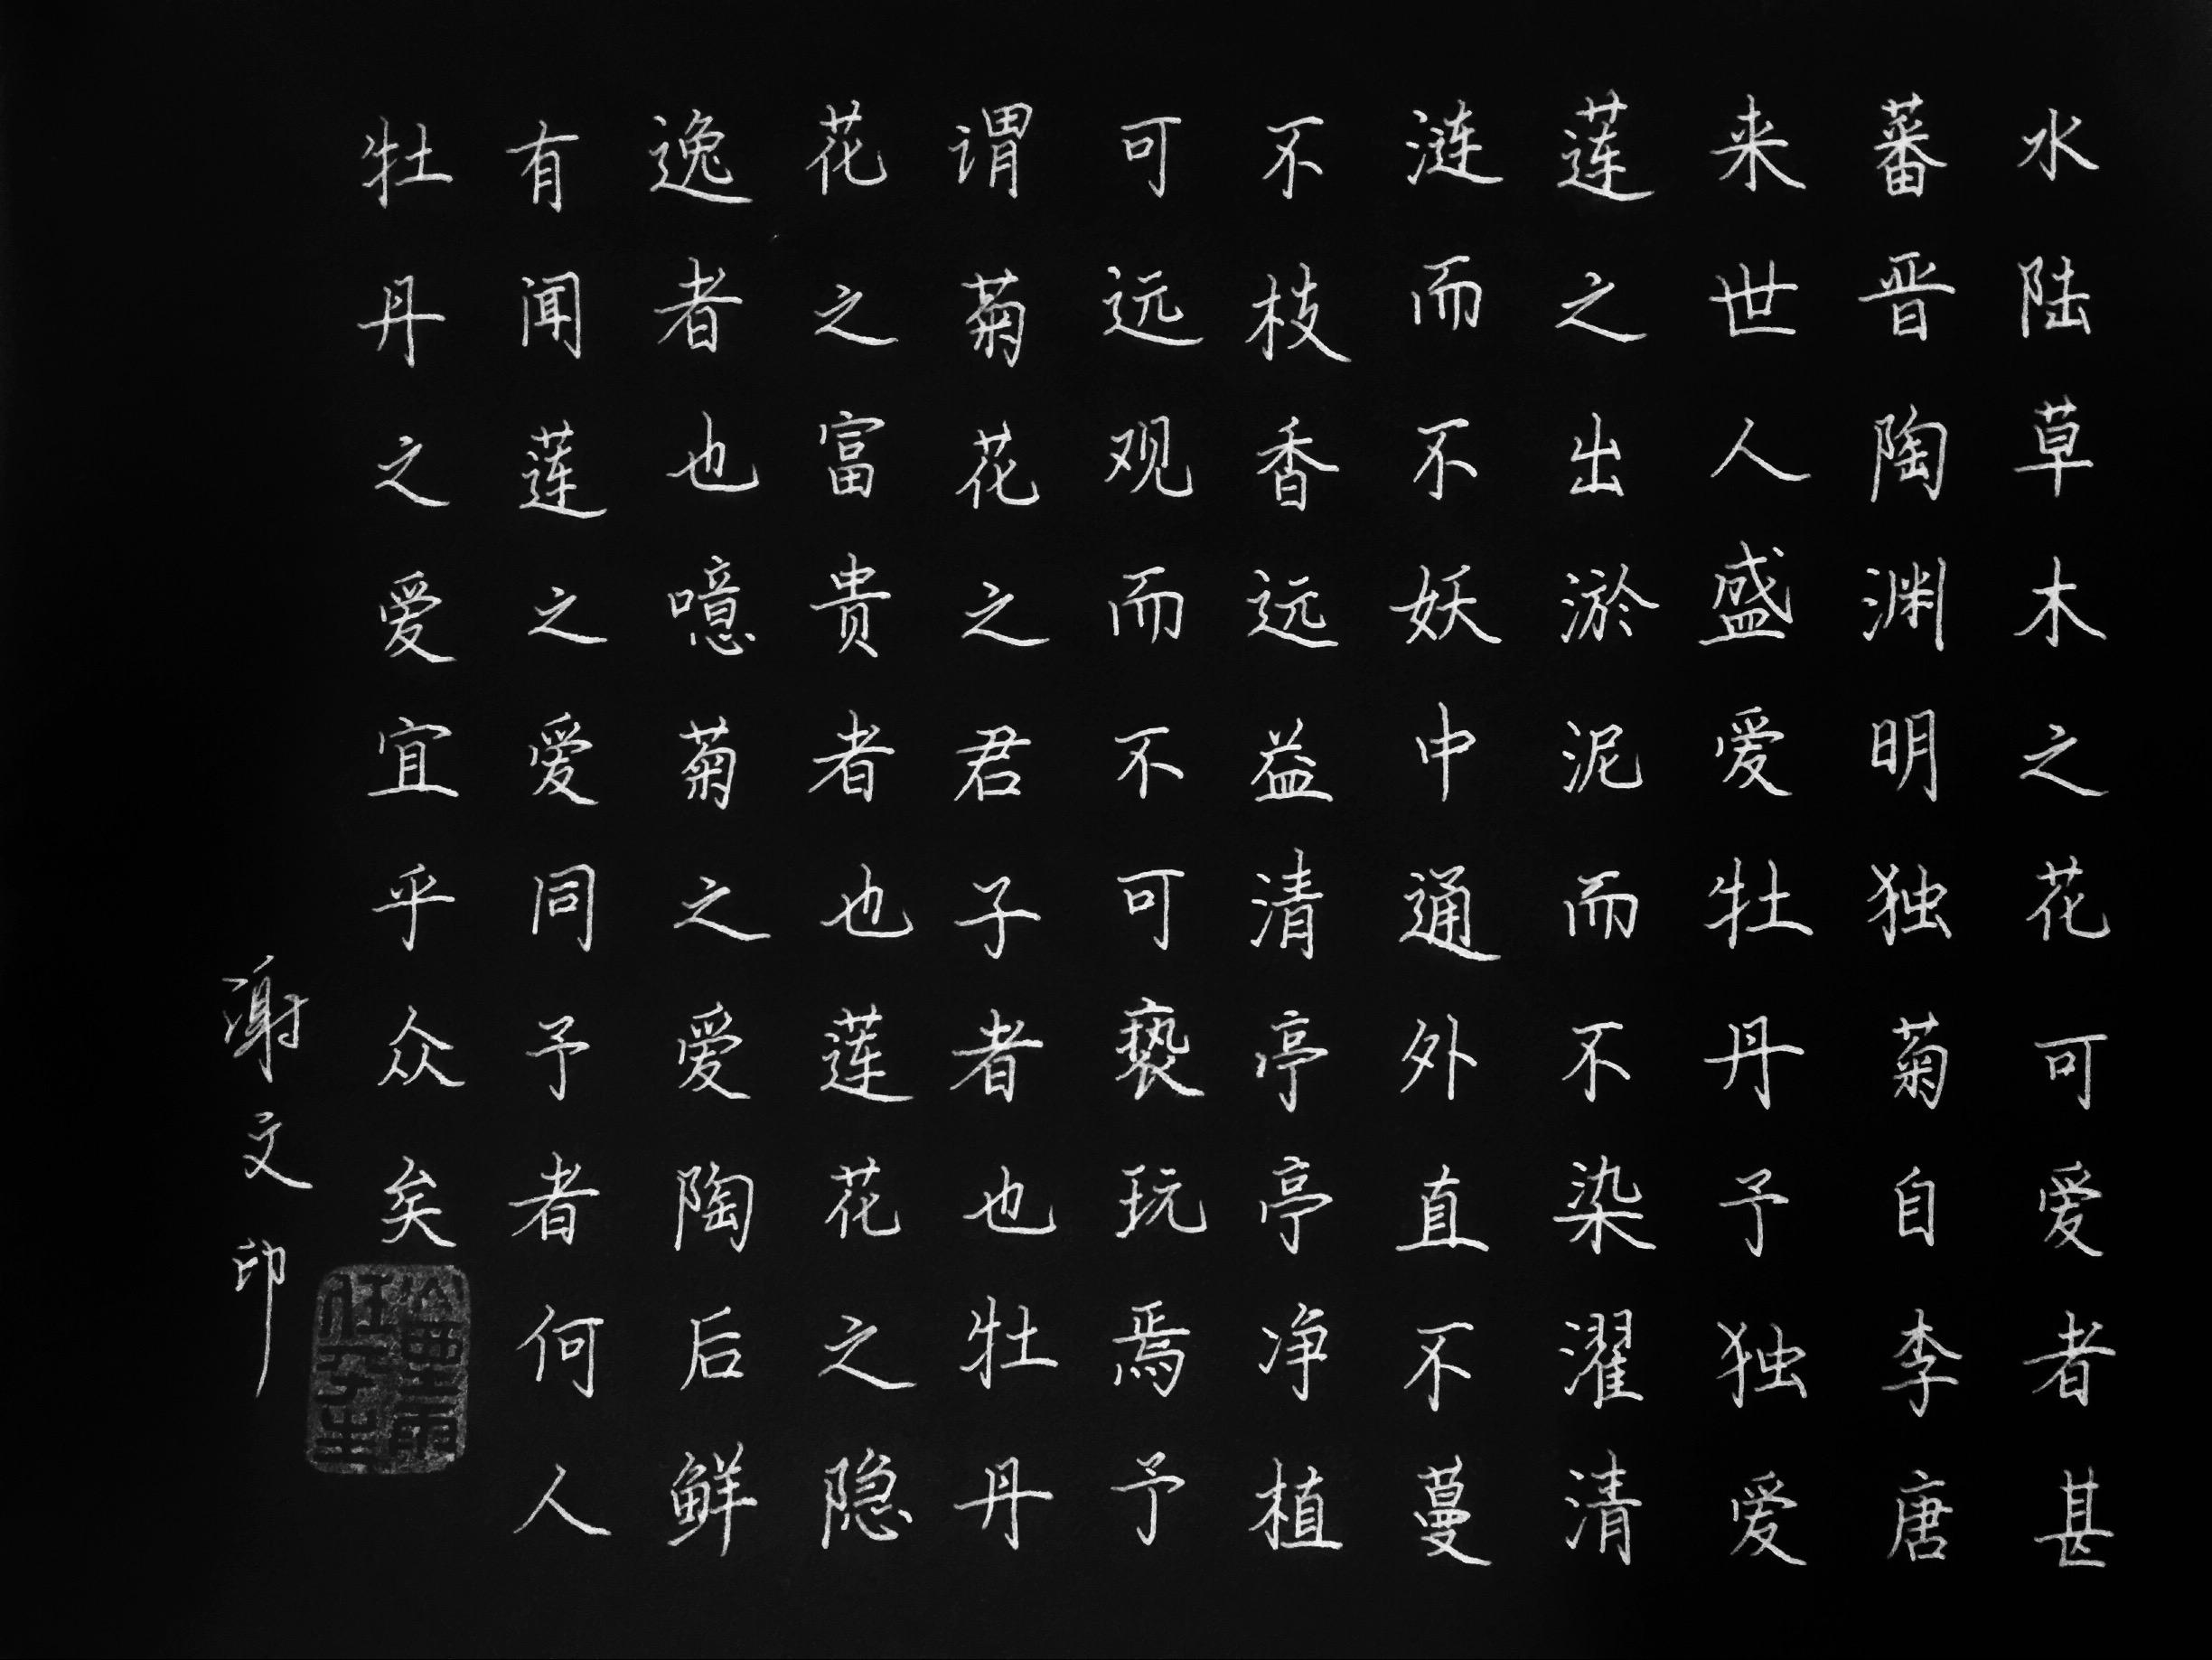 水陆草木之花可爱者甚
蕃晋陶渊明独菊自李唐
来世人盛爱牡丹予独爱
莲之出淤泥而不染濯清
涟而不妖中通外直不蔓
不枝香远益清亭亭净植
可远观而不可亵玩焉予
谓菊花之君子者也牡丹
花之富贵者也莲花之隐
逸者也噫菊之爱陶后鲜
有闻莲之爱同予者何人
牡丹之爱宜乎众矣
谢文印